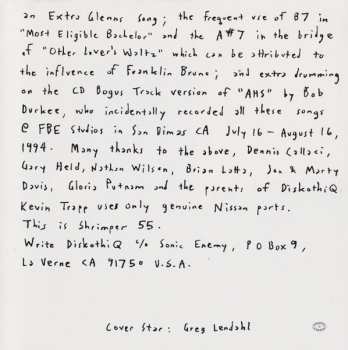 an Extra Glenns song; the frequent use of B7 in
"Most Eligible Bachelor" and the A#7 in the bridge
of "Other Lover's Waltz" which can be attributed to
the influence of Franklin Bruno; and extra drumming
on the CD Bogus Track version of "AHS" by Bob
Durkee, who incidentally recorded all these songs
@ FBE Studios in San Dimas CA July 16 - August 16,
1994. Many thanks to the above, Dennis Callaci,
Gary Held, Nathan Wilson, Brian Lotta, Jon & Marty
Davis, Gloria Putnam and the parents of DiskothiQ
Kevin Trapp uses only genuine Nissan parts.
This is Shrimper 55.
Write DiskothiQ c/o Sonic Enemy, P O Box 9,
La Verne CA 91750 U.S.A.
Cover Star: Greg Lendahl